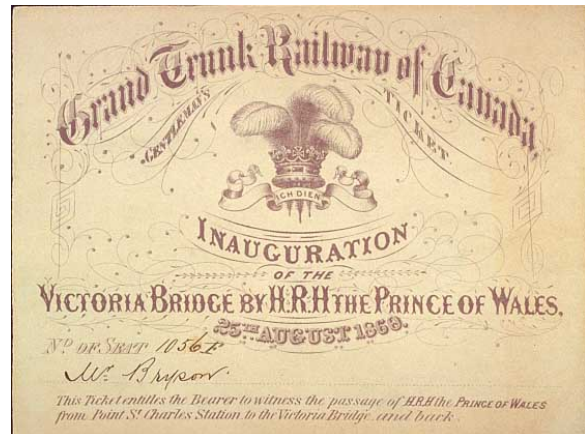 Grand Trunk Railway of Canada,
GENTLEMAN'S TICKET.
ICH DIEN
INAUGURATION
OF THE
VICTORIA BRIDGE BY H.R.H THE PRINCE OF WALES,
25TH AUGUST 1860.
No. OF SEAT 1056 F
Mr. Bryson.
This Ticket entitles the Bearer to witness the passage of H.R.H the PRINCE OF WALES
from Point St. Charles Station to the Victoria Bridge and back.